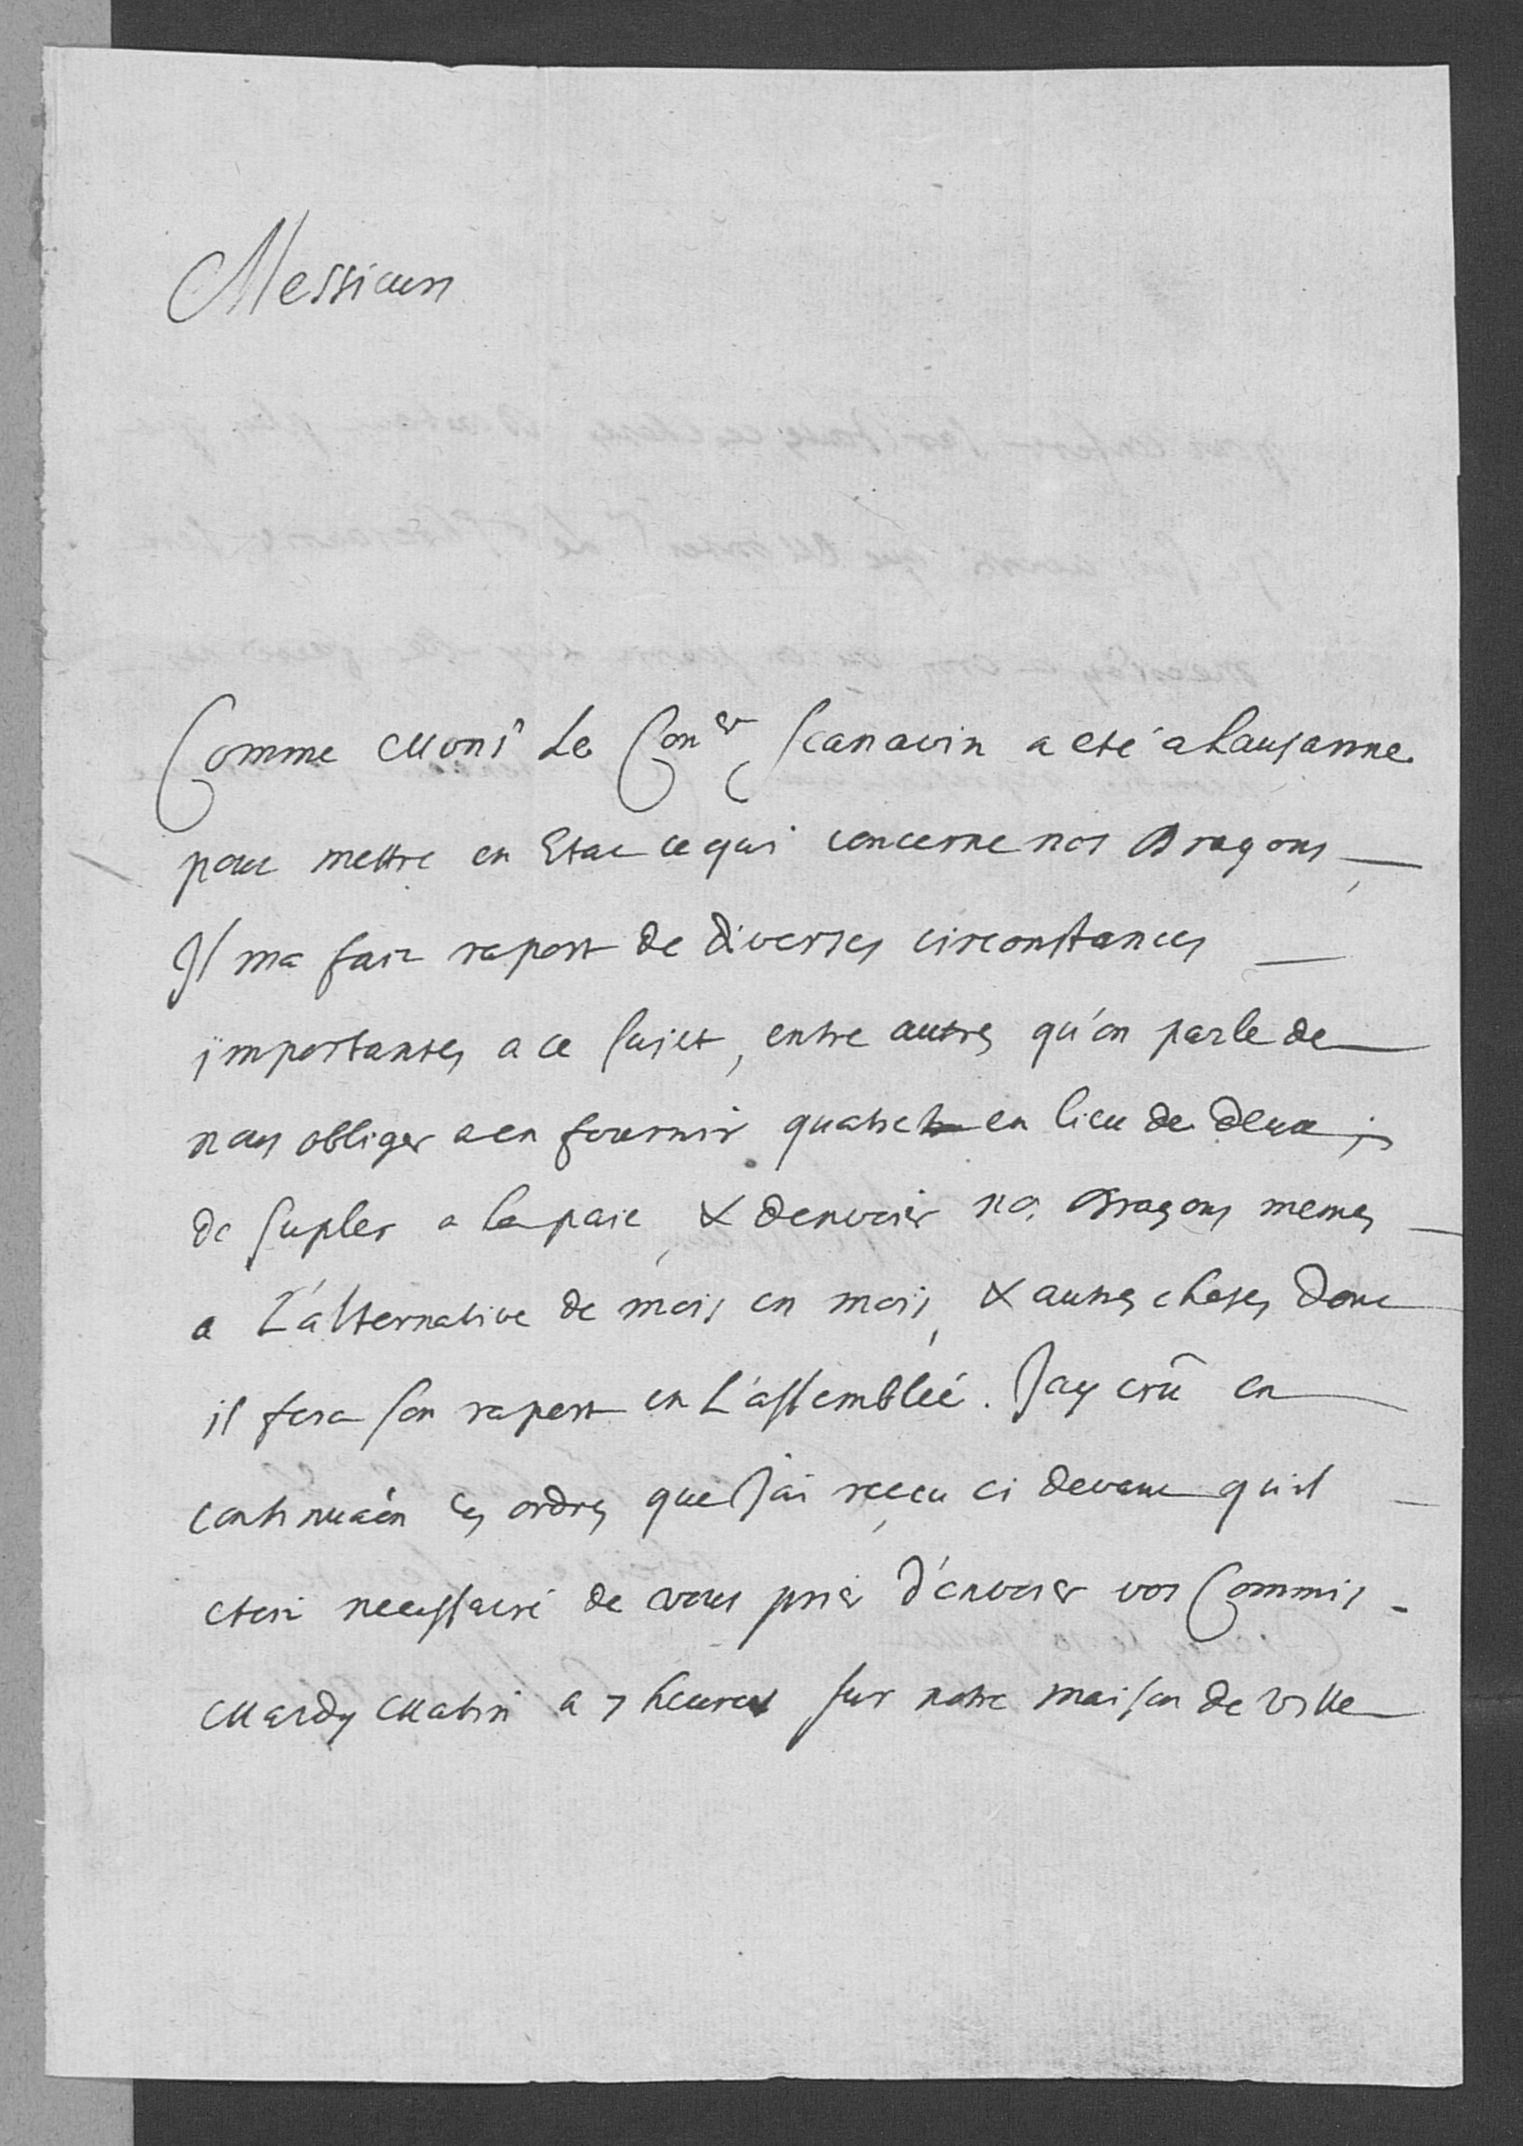 Messieurs
Comme Mons.r Le Con.er Scanavin a eté a Lausanne
pour mettre en Etat ce qui concerne nos Dragons
Il ma fait raport de diverses circonstances
importantes a ce sujet, entre autres qu'on parle de
nous obliger a en fournir quatre en lieu de deux;
de supleer a la paie, & denvoier nos Dragons memes
a L'alternative de mois en mois, & autres choses dont
il fera son raport en L'assemblée. J'ay crû en
continuaôn des ordres que J'ai reçeu ci devant qu'il
etoit necessaire de vous prier d'envoier vos Commis
Mardy Matin a 7 heures sur notre maison de ville